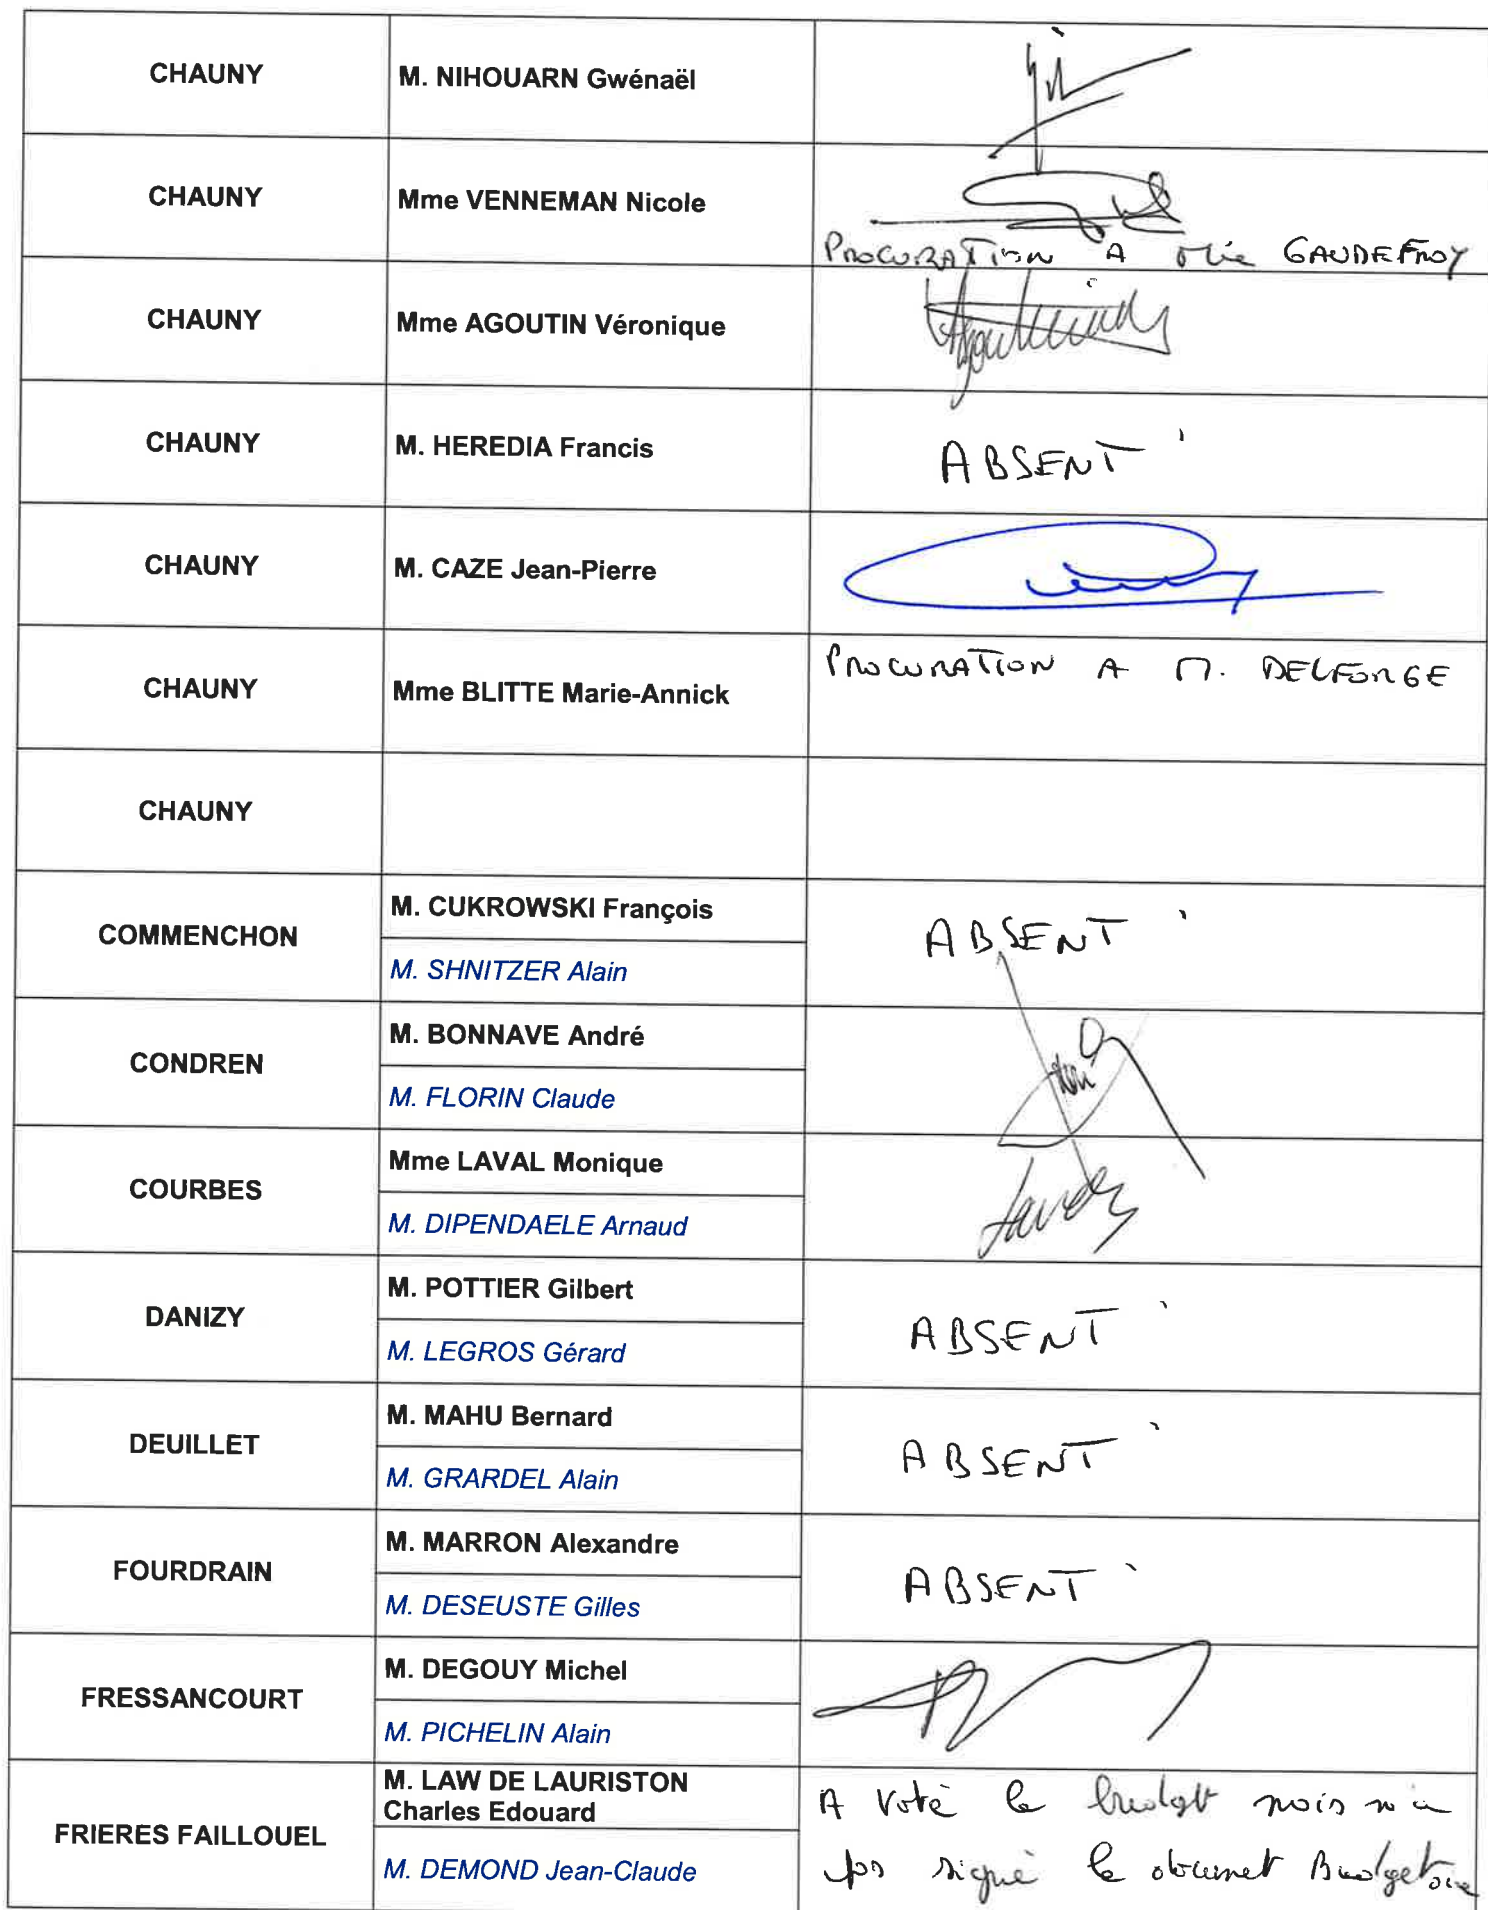 CHAUNY
M. NIHOUARN Gwénaël
CHAUNY
Mme VENNEMAN Nicole
PROCURATION A GAUDEFROY
CHAUNY
Mme AGOUTIN Véronique
CHAUNY
M. HEREDIA Francis
ABSENT
CHAUNY
M. CAZE Jean-Pierre
CHAUNY
Mme BLITTE Marie-Annick
PROCURATION A M. DELFORGE
CHAUNY
COMMENCHON
M. CUKROWSKI François
M. SHNITZER Alain
ABSENT
CONDREN
M. BONNAVE André
M. FLORIN Claude
COURBES
Mme LAVAL Monique
M. DIPENDAELE Arnaud
DANIZY
M. POTTIER Gilbert
M. LEGROS Gérard
ABSENT
DEUILLET
M. MAHU Bernard
M. GRARDEL Alain
ABSENT
FOURDRAIN
M. MARRON Alexandre
M. DESEUSTE Gilles
ABSENT
FRESSANCOURT
M. DEGOUY Michel
M. PICHELIN Alain
FRIERES FAILLOUEL
M. LAW DE LAURISTON
Charles Edouard
M. DEMOND Jean-Claude
A voté le budget mais n'a
pas signé le document Budgetaire